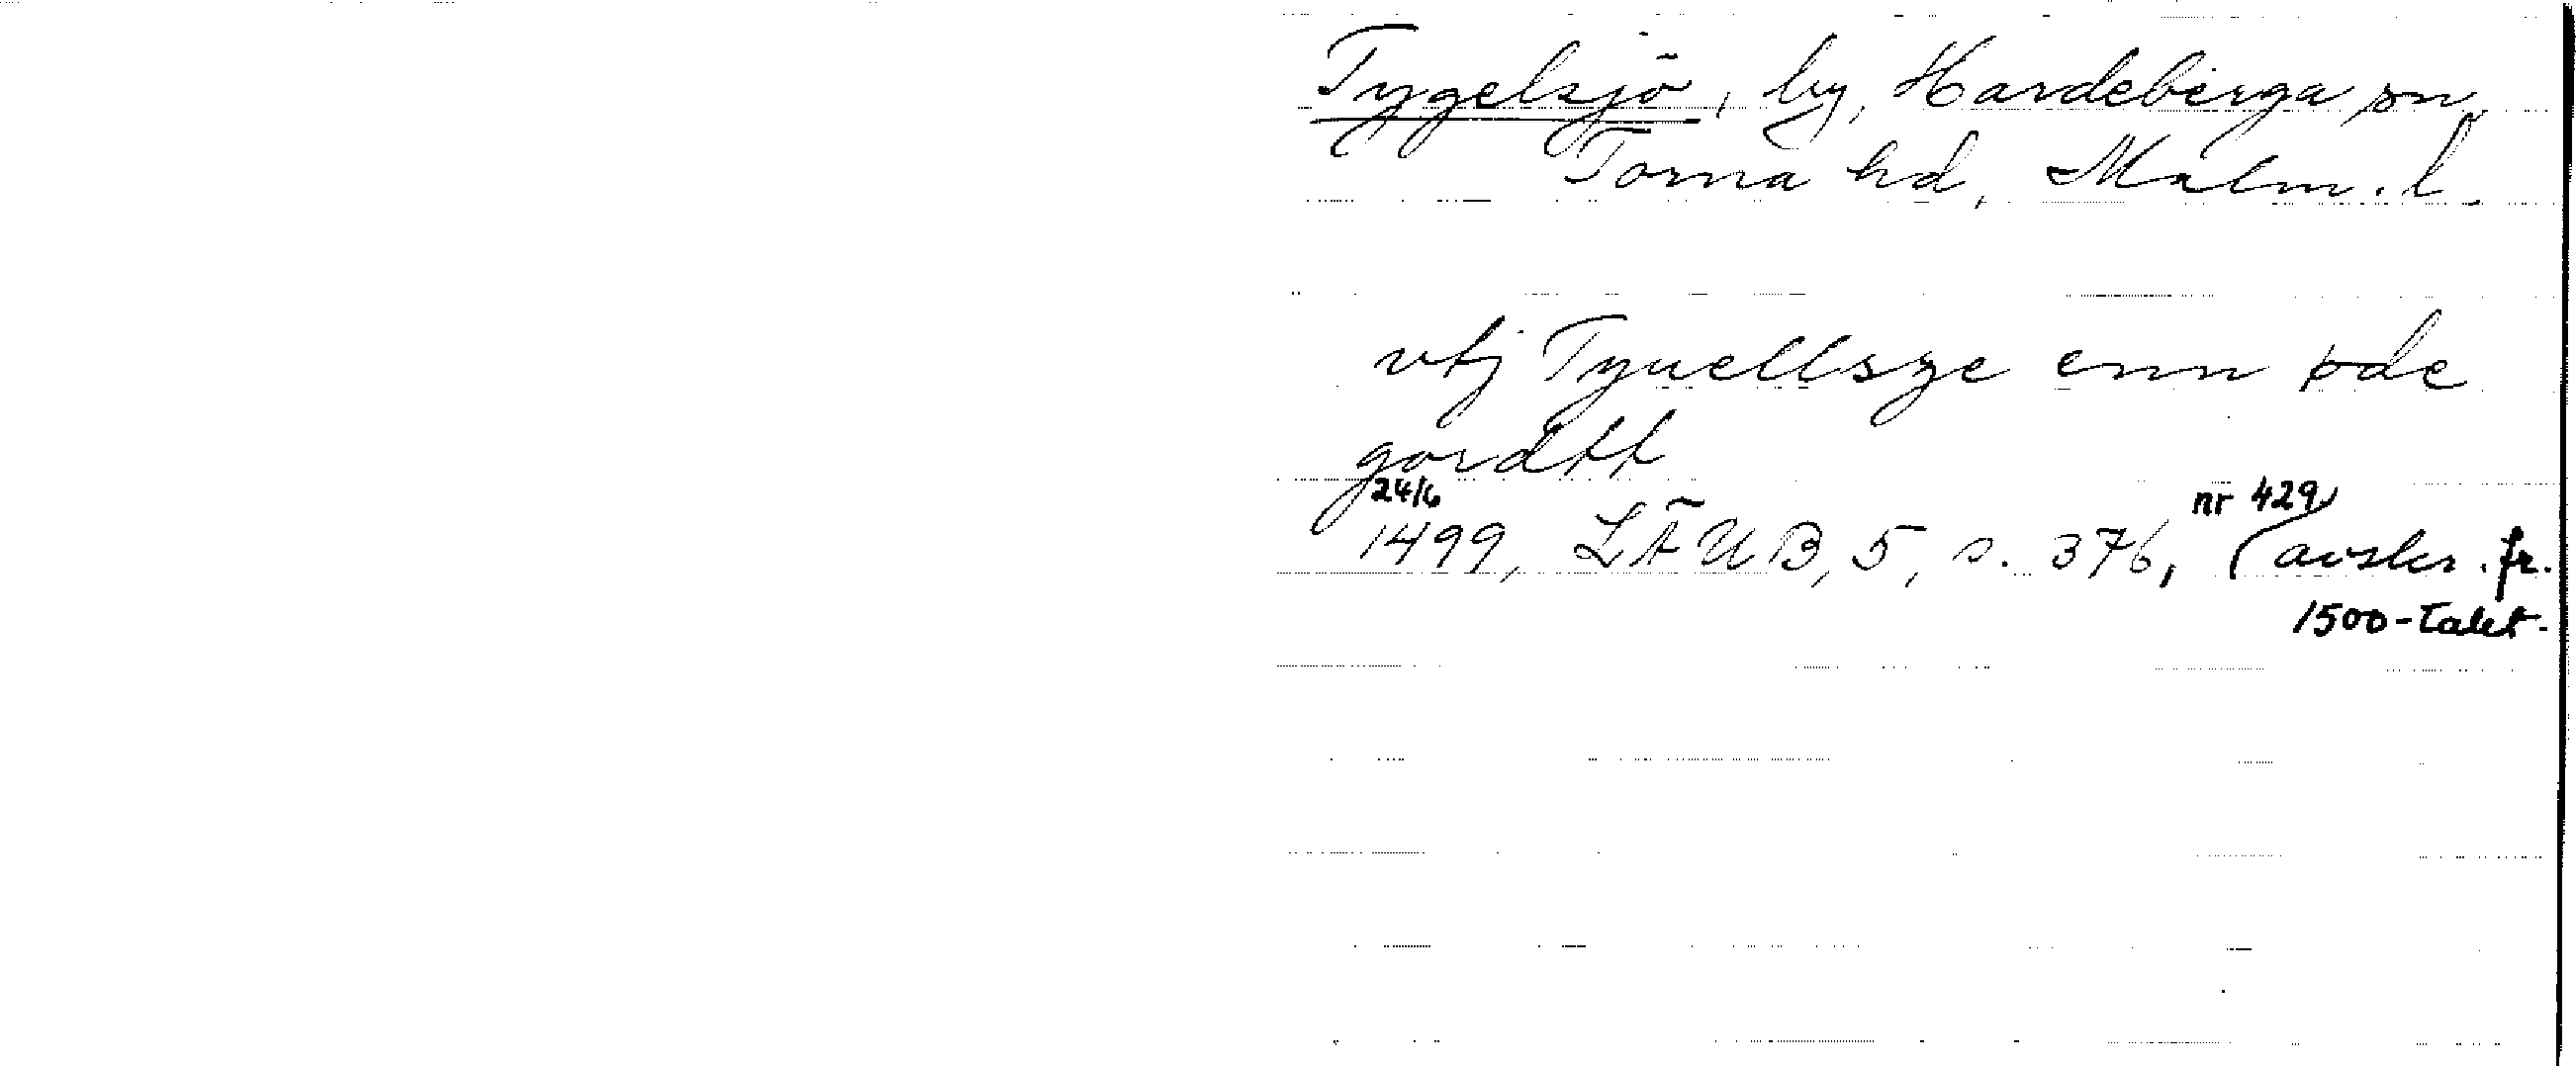 Tygelsjö, by, Hardeberga sn,
Torna hd, Malm. l.
vtj Tyuellsye enn øde
gordtt
24/6
1499, LÄUB, 5, s. 376, nr 429, (avskr. fr.
1500-talet.